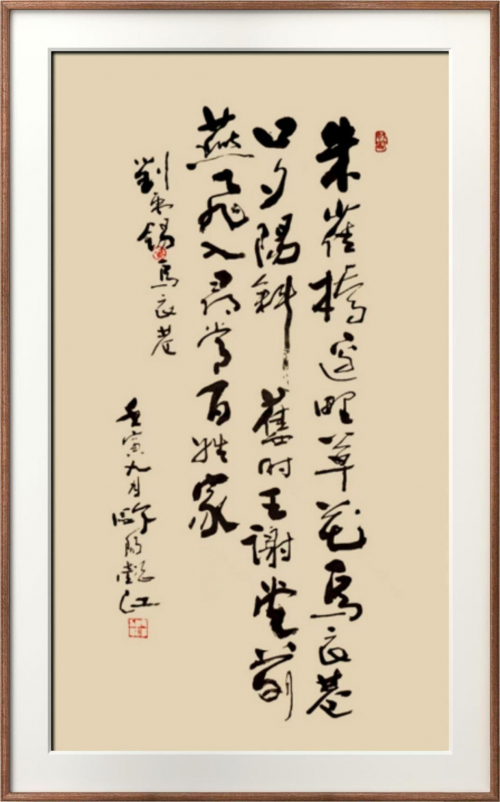 朱雀橋邊野草花烏衣巷
口夕陽斜舊時王謝堂前
燕飛入尋常百姓家
劉禹錫烏衣巷
壬寅九月